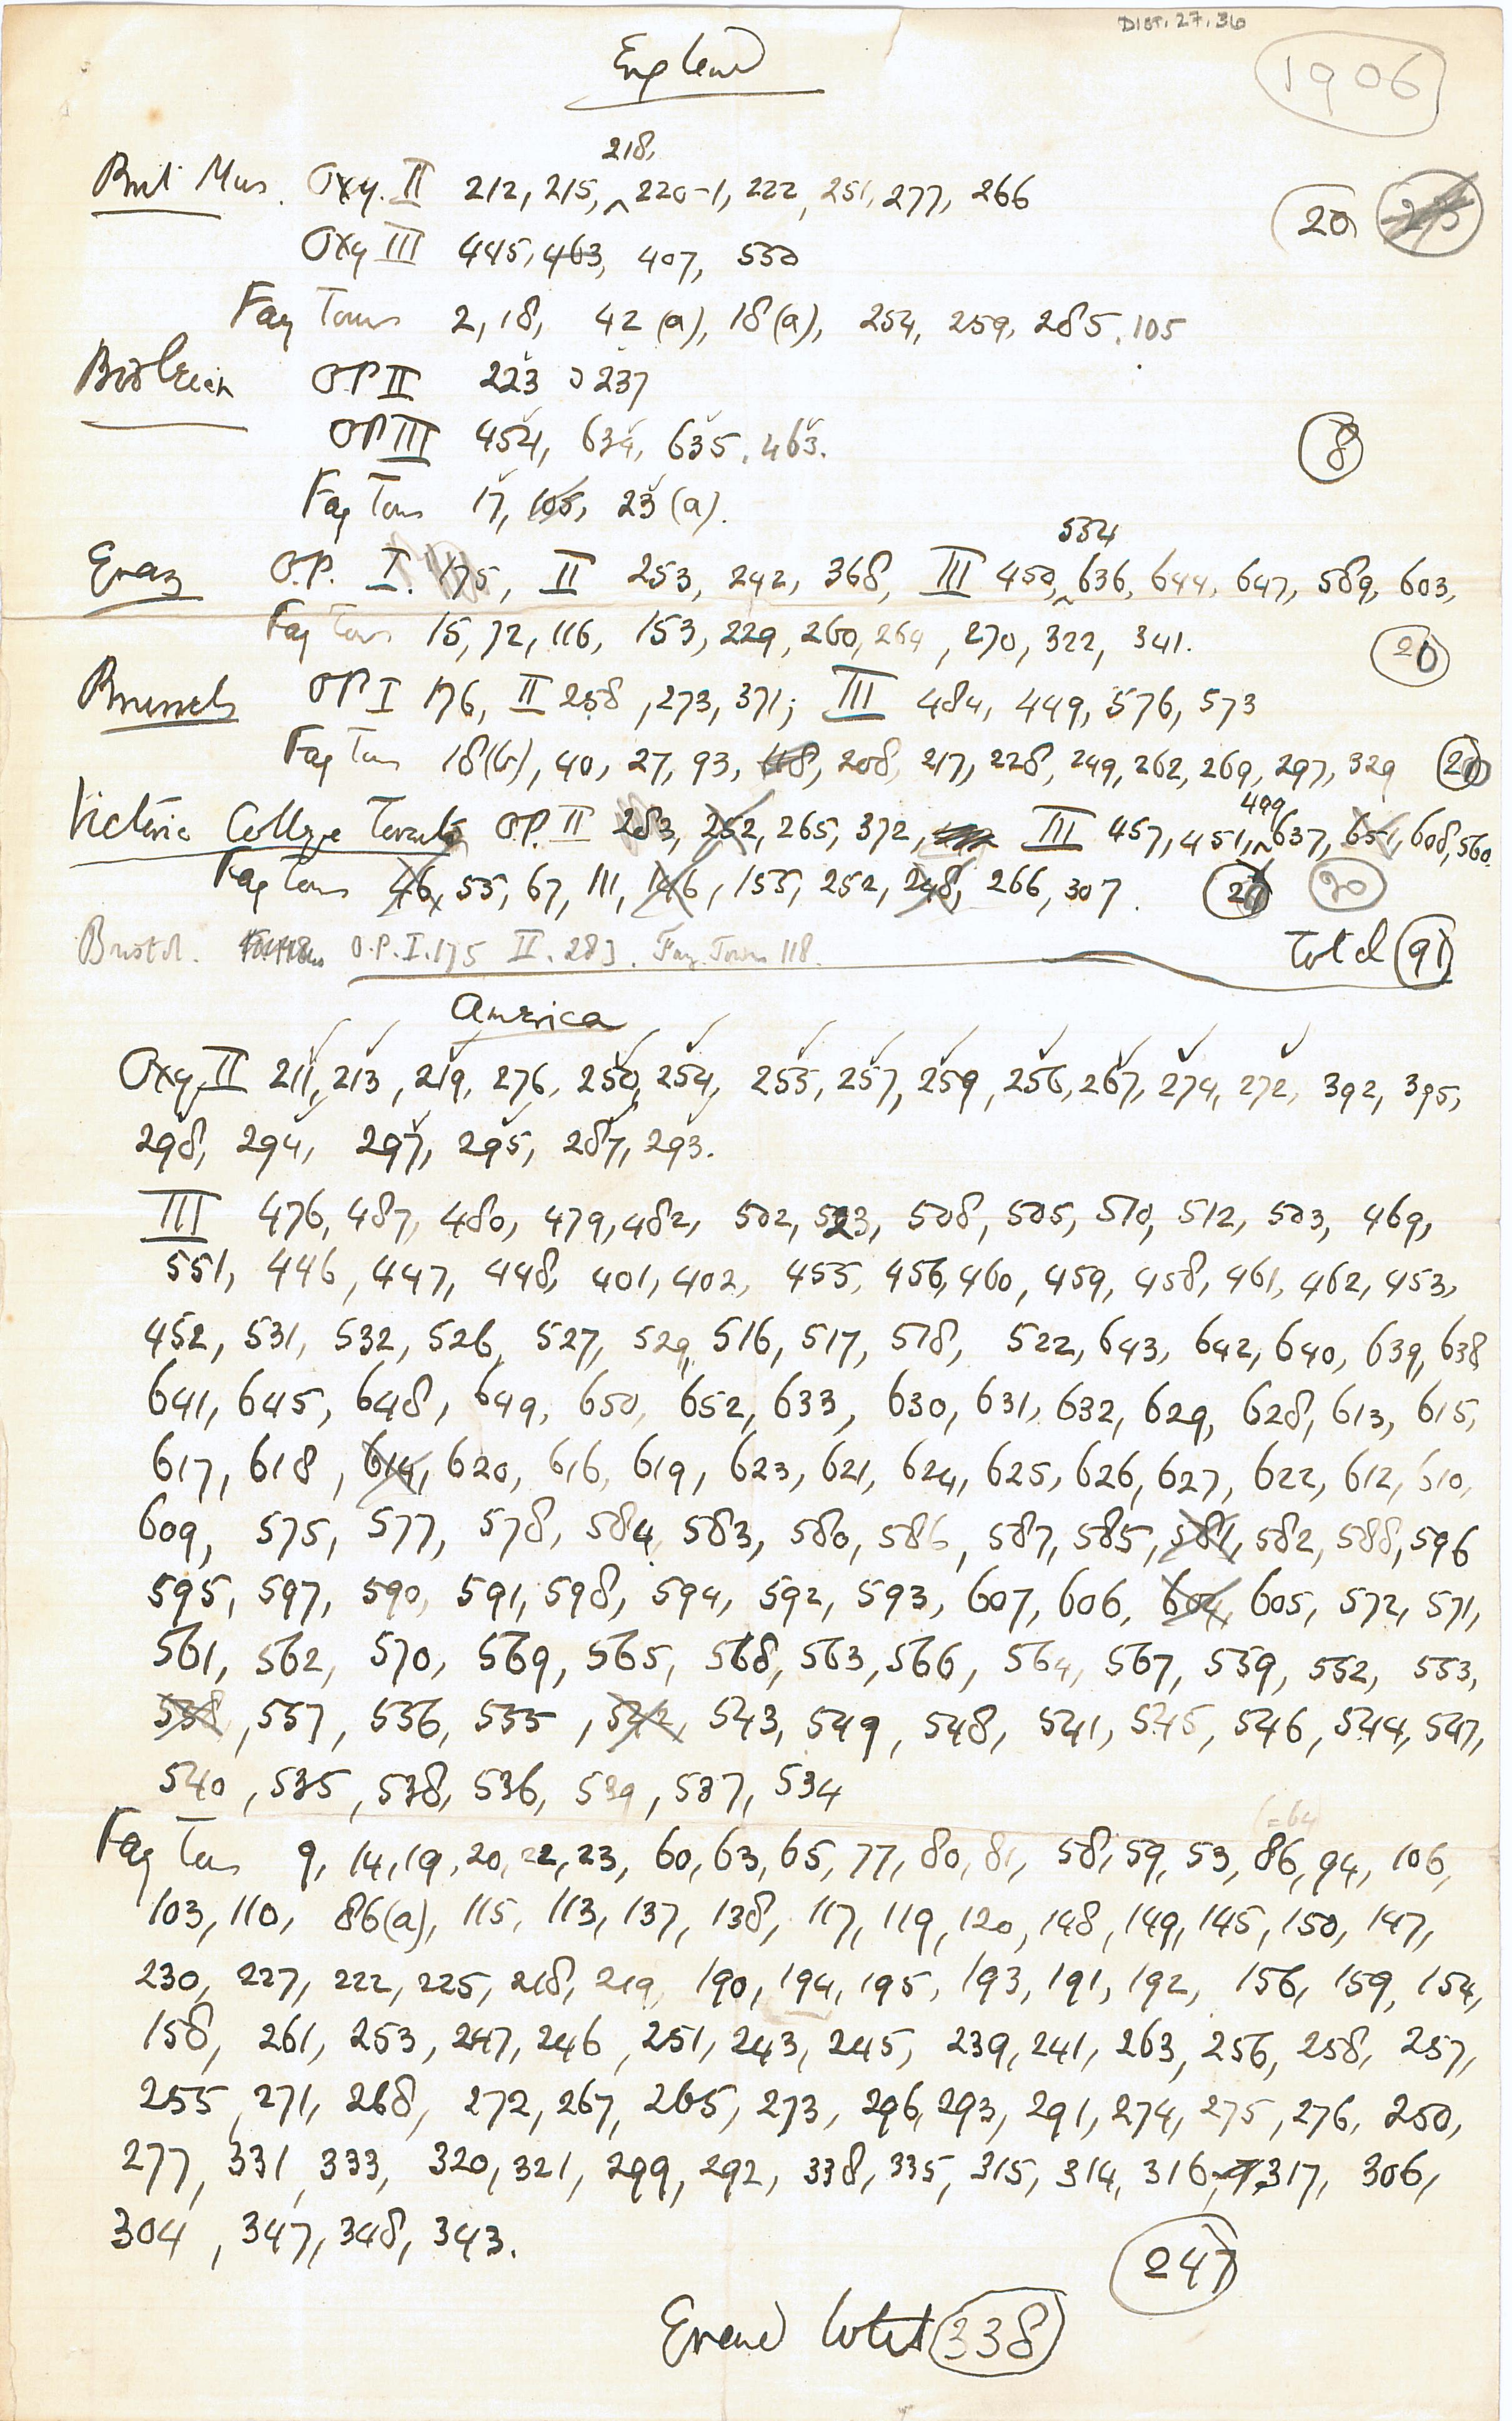 DIST. 27.36
England
1906
218,
Brit Mus. Oxy. II 212, 215, ^ 220-1, 222, 251, 277, 266
20 25
Oxy III 445, 463, 407, 550
Fay Towns 2, 18, 42 (a), 18(a), 254, 259, 285, 105
Bodleian OP II 223 237
OP III 454, 634, 635, 463.
8
Fay Towns 17, 105, 23 (a).
554
Graz O.P. I. 175, II 253, 242, 368, III 450, ^ 636, 644, 647, 589, 603,
Fay Towns 15, 72, 116, 153, 229, 260, 264, 270, 322, 341.
20
Brussels OP I 176, II 258, 273, 371; III 484, 449, 576, 573
Fay Towns 18(b), 40, 27, 93, 118, 208, 217, 228, 249, 262, 269, 297, 329
499
Victoria College Toronto O.P. II 283, 252, 265, 372, III 457, 451, ^ 637, 651, 608, 560.
Fay Towns 46, 55, 67, 111, 146, 155, 252, 248, 266, 307. 20
Bristol. O.P. I. 175 II. 283. Fay Towns 118.
Total 91
America
Oxy II 211, 213, 219, 276, 250, 254, 255, 257, 259, 256, 267, 274, 272, 392, 395,
298, 294, 297, 295, 287, 293.
III 476, 487, 480, 479, 482, 502, 523, 508, 505, 510, 512, 503, 469,
551, 446, 447, 448, 401, 402, 455, 456, 460, 459, 458, 461, 462, 453,
452, 531, 532, 526, 527, 529, 516, 517, 518, 522, 643, 642, 640, 639, 638
641, 645, 648, 649, 650, 652, 633, 630, 631, 632, 629, 628, 613, 615,
617, 618, 614, 620, 616, 619, 623, 621, 624, 625, 626, 627, 622, 612, 610,
609, 575, 577, 578, 584, 583, 580, 586, 587, 585, 581, 582, 588, 596
595, 597, 590, 591, 598, 594, 592, 593, 607, 606, 604, 605, 572, 571,
561, 562, 570, 569, 565, 568, 563, 566, 564, 567, 559, 552, 553,
558, 557, 556, 555, 542, 543, 549, 548, 541, 545, 546, 544, 547,
540, 535, 538, 536, 539, 537, 534
(= 64)
Fay Towns 9, 14, 19, 20, 22, 23, 60, 63, 65, 77, 80, 81, 58, 59, 53, 86, 94, 106,
103, 110, 86(a), 115, 113, 137, 138, 117, 119, 120, 148, 149, 145, 150, 147,
230, 227, 222, 225, 218, 219, 190, 194, 195, 193, 191, 192, 156, 159, 154,
158, 261, 253, 247, 246, 251, 243, 245, 239, 241, 263, 256, 258, 257,
255, 271, 268, 272, 267, 265, 273, 296, 293, 291, 274, 275, 276, 250,
277, 331, 333, 320, 321, 299, 292, 338, 335, 315, 314, 316, 317, 306,
304, 347, 348, 343.
247
Grand total 338